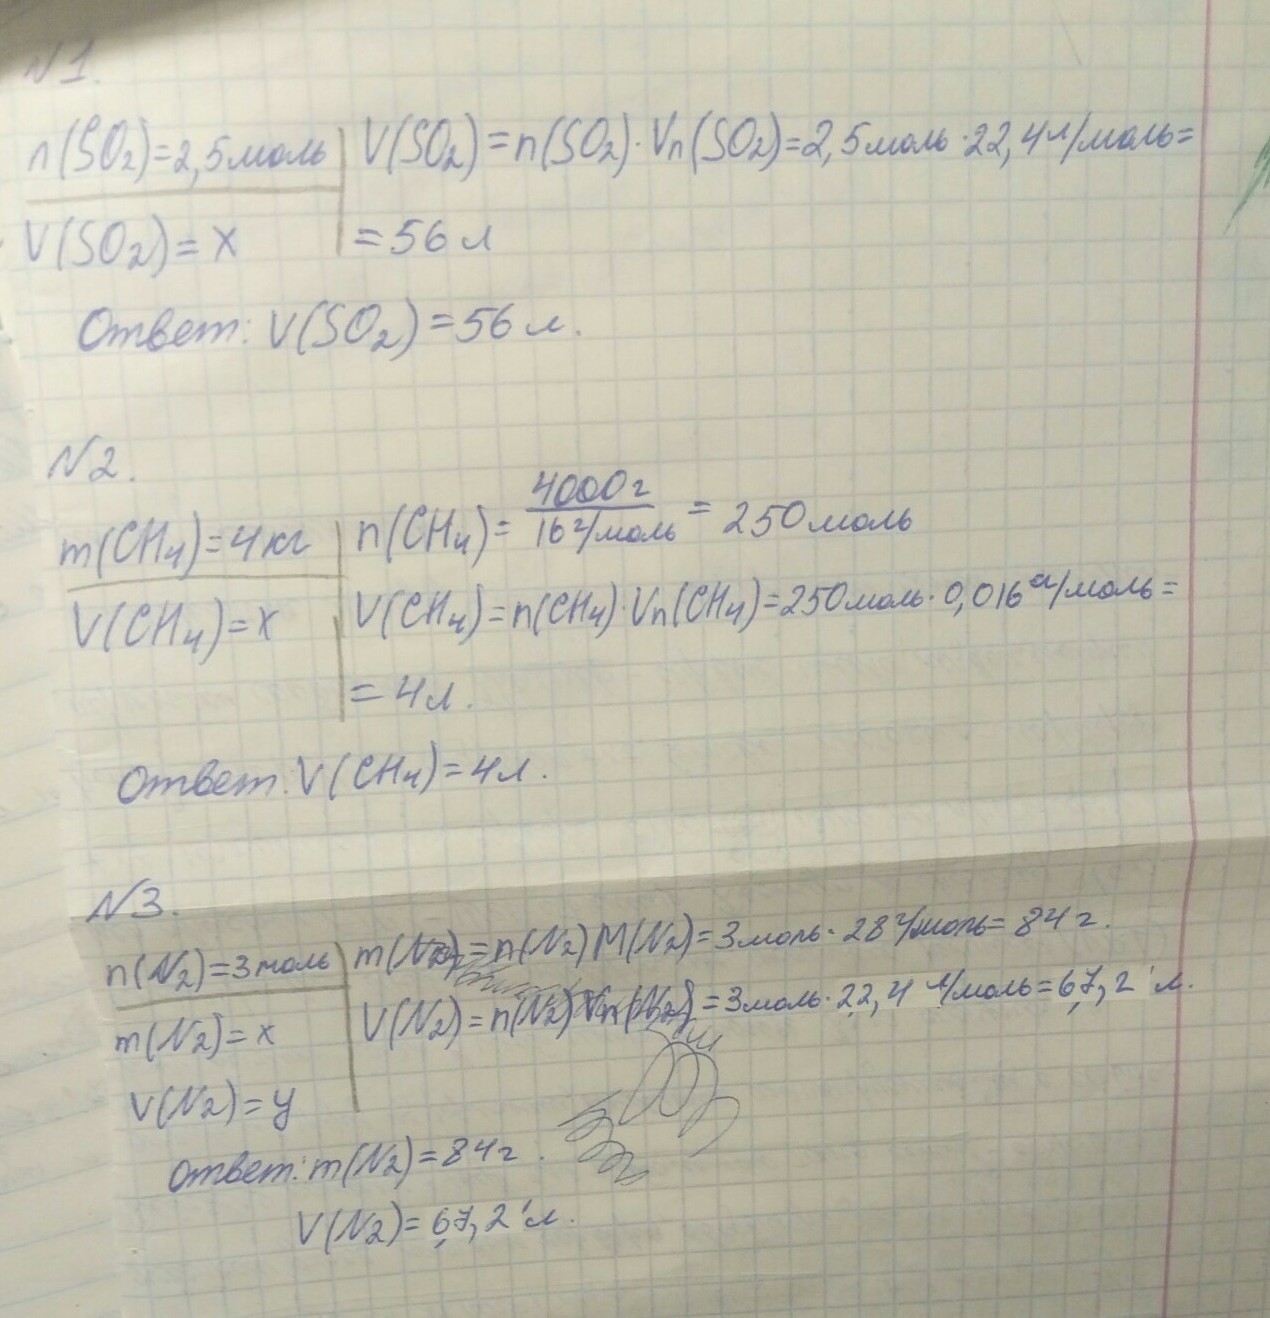 N1.
n(SO₂)=2,5моль V(SO₂)=n(SO₂)·Vn(SO₂)=2,5моль·22,4л/моль=
V(SO₂)=x =56л
Ответ: V(SO₂)=56л.
N2.
m(CH₄)=4кг n(CH₄)=4000г/16г/моль=250моль
V(CH₄)=x V(CH₄)=n(CH₄)·Vn(CH₄)=250моль·0,016л/моль=
=4л.
Ответ. V(CH₄)=4л.
N3.
n(N₂)=3моль m(N₂)=n(N₂)M(N₂)=3моль·28г/моль=84г.
m(N₂)=x V(N₂)=n(N₂)Vn(N₂)=3моль·22,4л/моль=67,2л.
V(N₂)=y
Ответ: m(N₂)=84г.
V(N₂)=67,2л.